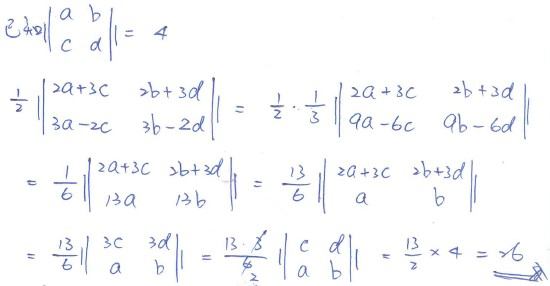 已知||a b; c d|| = 4
1/2 ||2a+3c 2b+3d; 3a-2c 3b-2d|| = 1/2 · 1/3 ||2a+3c 2b+3d; 9a-6c 9b-6d||
= 1/6 ||2a+3c 2b+3d; 13a 13b|| = 13/6 ||2a+3c 2b+3d; a b||
= 13/6 ||3c 3d; a b|| = 13·3/6 2 ||c d; a b|| = 13/2 × 4 = 26